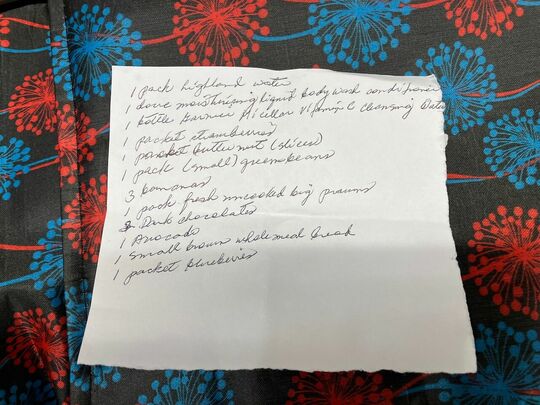 1 pack highland water
1 dove moisturising liquid body wash conditioner
1 bottle Micellar Vitamin C cleansing Water
1 packet strawberries
1 packet butter nut (slices)
1 pack (small) greenbeans
3 bananas
1 pack fresh uncooked big prawns
Dark chocolates
1 Avocado
1 small brown wholemeal bread
1 packet blueberries